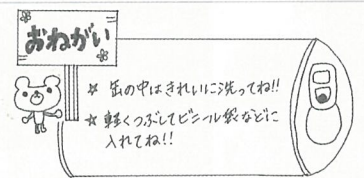 おねがい
☆ 缶の中はきれいに洗ってね!!
★ 軽くつぶしてビニール袋などに
入れてね!!